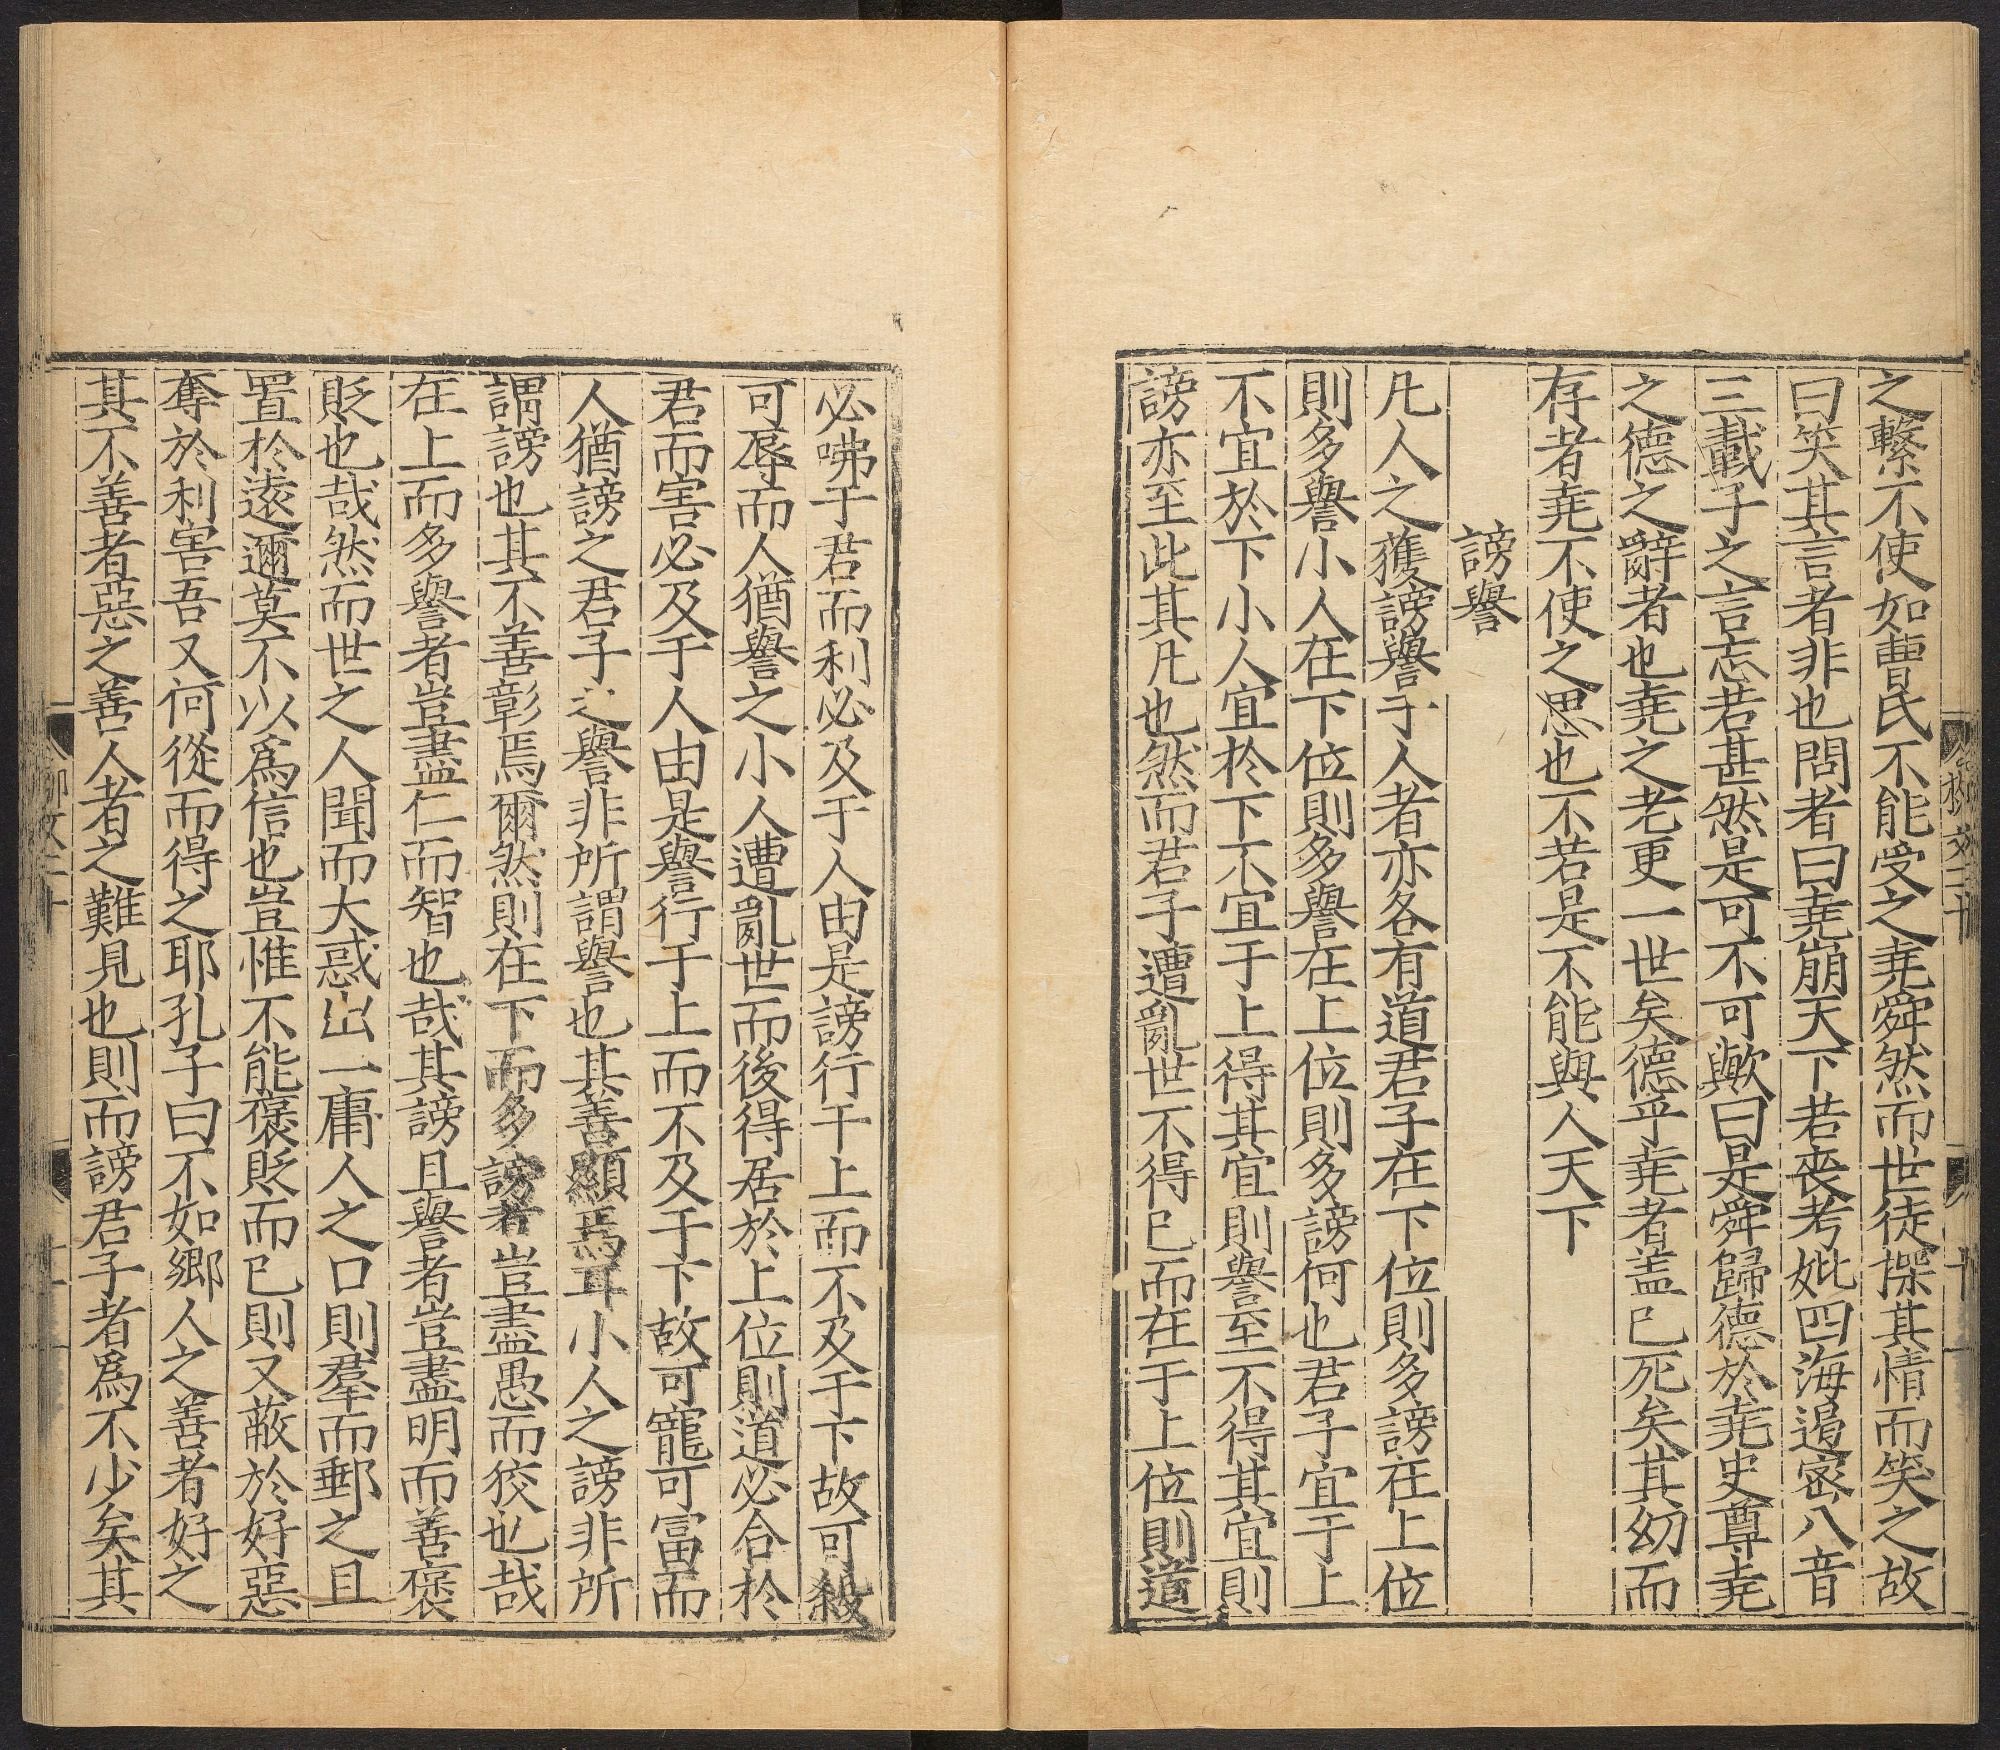 之繫不使如曹氏不能受之堯舜然而世徒探其情而笑之故
曰笑其言者非也問者曰堯崩天下若喪考妣四海遏密八音
三載子之言忘若甚然是可不可歟曰是舜歸德於堯史尊堯
之德之辭者也堯之老更一世矣德乎堯者蓋已死矣其幼而
存者堯不使之思也不若是不能與人天下
謗譽
凡人之獲謗譽于人者亦各有道君子在下位則多謗在上位
則多譽小人在下位則多譽在上位則多謗何也君子宜于上
不宜於下小人宜於下不宜于上得其宜則譽至不得其宜則
謗亦至此其凡也然而君子遭亂世不得已而在于上位則道
必咈于君而利必及于人由是謗行于上而不及于下故可殺
可辱而人猶譽之小人遭亂世而後得居於上位則道必合於
君而害必及于人由是譽行于上而不及于下故可寵可富而
人猶謗之君子之譽非所謂譽也其善顯焉耳小人之謗非所
謂謗也其不善彰焉爾然則在下而多謗者豈盡愚而狡也哉
在上而多譽者豈盡仁而智也哉其謗且譽者豈盡明而善褒
貶也哉然而世之人聞而大惑出一庸人之口則羣而郵之且
置於遠邇莫不以爲信也豈惟不能褒貶而已則又蔽於好惡
奪於利害吾又何從而得之耶孔子曰不如鄉人之善者好之
其不善者惡之善人者之難見也則而謗君子者爲不少矣其
柳文二十
十一